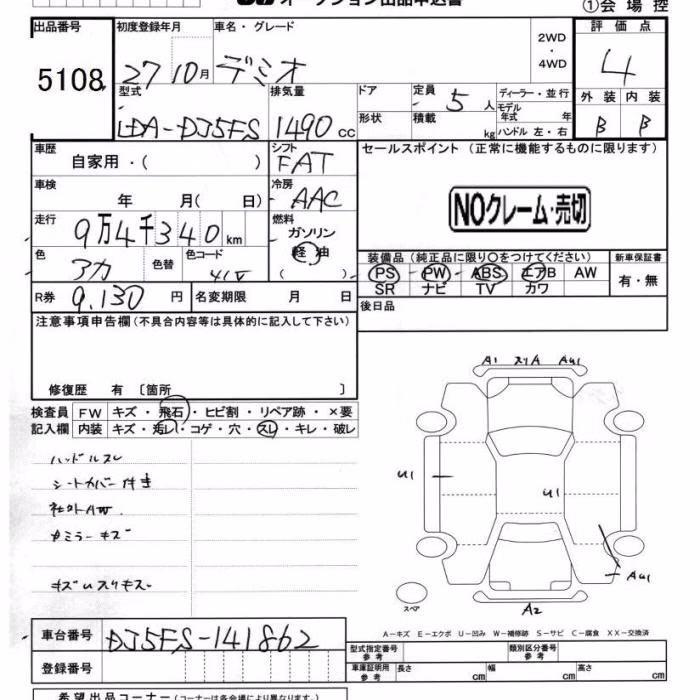 オークション出品申込書
①会場控
出品番号
5108
初度登録年月
27 10月
車名・グレード
デミオ
2WD
・
4WD
評価点
4
型式
LDA-DJ5FS
排気量
1490 cc
ドア
定員
5 人
ディーラー・並行
モデル
年式 年
形状
積載
kg
ハンドル 左・右
外装 内装
B B
車歴
自家用・( )
シフト
FAT
セールスポイント (正常に機能するものに限ります)
車検
年 月( 日)
冷房
AAC
NOクレーム・売切
走行
9万4千340km
燃料
ガソリン
軽油
( )
色
アカ
色替
色コード
41V
装備品(純正品に限り○をつけてください)
新車保証書
PS - PW - ABS エアB AW
SR ナビ TV カワ
有・無
R券
9,130 円
名変期限 月 日
後日品
注意事項申告欄(不具合内容等は具体的に記入して下さい)
修復歴 有 〔箇所 〕
検査員
記入欄
FW キズ・飛石・ヒビ割・リペア跡・×要
内装 キズ・汚レ・コゲ・穴・スレ・キレ・破レ
ハンドルスレ
シートカバー付き
社外AW
カミラーキズ
キズUスリキズ
A1 スリA AU1
U1
U1
AU1
A2
スペア
A−キズ E−エクボ U−凹み W−補修跡 S−サビ C−腐食 XX−交換済
車台番号
DJ5FS-141862
型式指定番号
参考
類別区分番号
参考
登録番号
車庫証明用
参考
長さ cm
幅 cm
高さ cm
希望出品コーナー(コーナーは各会場により異なります。)